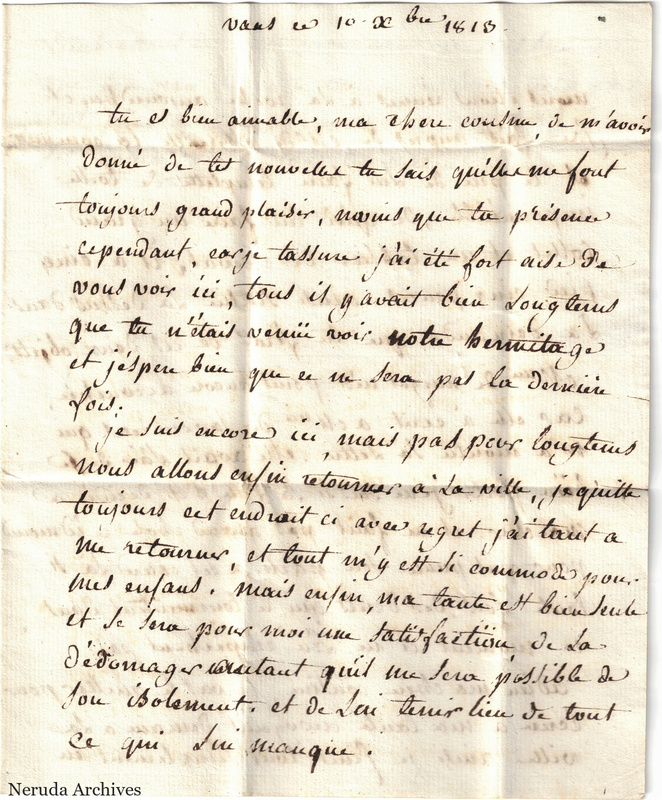 vaus ce 10 Xbre 1813.
tu es bien aimable, ma chere cousine, de m'avoir
donné de tes nouvelles tu sais qu'elles me font
toujours grand plaisir, moins que ta présence
cependant, car je tassure j'ai été fort aise de
vous voir ici, tous il y avait bien Longtems
que tu n'étais venüe voir notre hermitage
et j'éspere bien que ce ne sera pas la derniere
fois.
je suis encore ici, mais pas pour longtems
nous allons enfin retourner à La ville, je quitte
toujours cet endroit ci avec regret j'ai tant a
me retourner, et tout m'y est si commode pour
mes enfans. mais enfin, ma tante est bien seule
et se sera pour moi une satisfaction de La
dédomager autant qu'il me sera possible de
son isolement. et de Lui tenir lieu de tout
ce qui Lui manque.
Neruda Archives